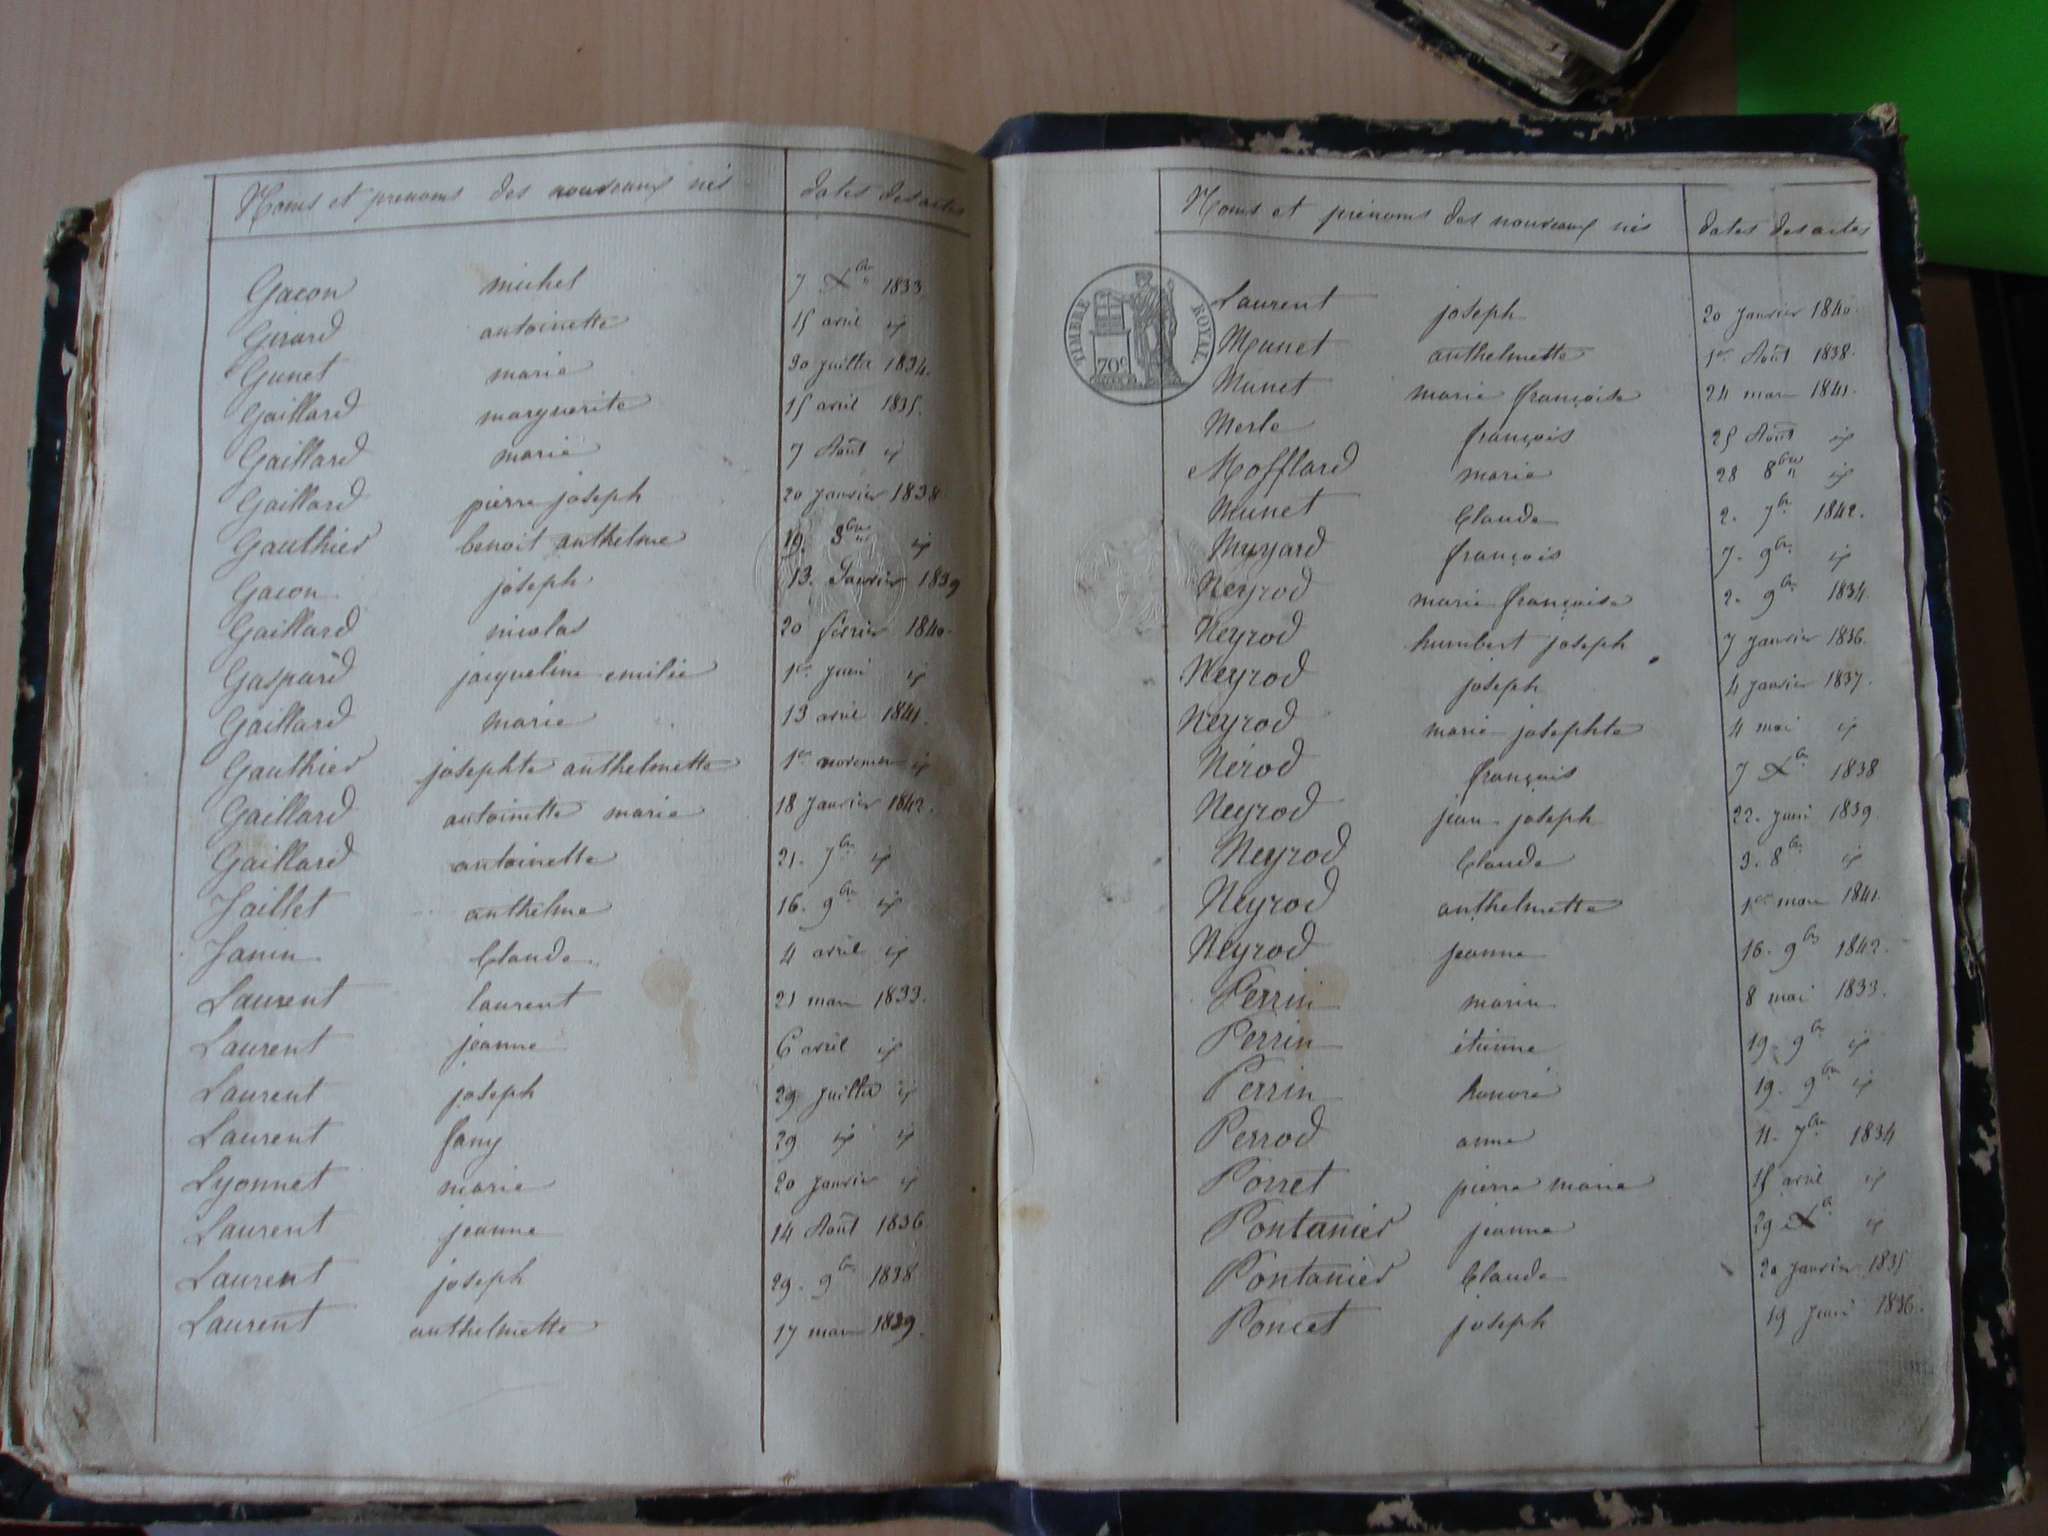 Noms et prénoms des nouveaux nés dates des actes
Gacon michel 7 Xbre 1833
Girard antoinette 15 avril id
Gunet marie 30 juillet 1834.
Gaillard marguerite 15 avril 1835.
Gaillard marie 7 Août id
Gaillard pierre joseph 20 janvier 1838
Gauthier benoit anthelme 19. 8bre id
Gacon joseph 13. Janvier 1839
Gaillard nicolas 20 février 1840.
Gaspard jacqueline emilie 1er juin id
Gaillard marie 13 avril 1841.
Gauthier josephte anthelmette 1er novembre id
Gaillard antoinette marie 18 janvier 1842.
Gaillard antoinette 21. 7bre id
Jaillet anthelme 16. 9bre id
Janin Claude 4 avril id
Laurent laurent 21 mars 1833.
Laurent jeanne 6 avril id
Laurent joseph 29 juillet id
Laurent fany 29 id id
Lyonnet marie 20 janvier id
Laurent jeanne 14 Août 1836
Laurent joseph 29. 9bre 1838
Laurent anthelmette 17 mars 1839.
Noms et prénoms des nouveaux nés dates des actes
TIMBRE ROYAL
70c
Laurent joseph 20 janvier 1840.
Munet anthelmette 1er Août 1838.
Munet marie françoise 24 mars 1841.
Merle françois 25 Août id
Mofflard marie 28 8bre id
Munet Claude 2. 7bre 1842.
Muyard françois 7. 9bre id
Neyrod marie françoise 2. 9bre 1834.
Neyrod humbert joseph 7 janvier 1836.
Neyrod joseph 4 janvier 1837.
Neyrod marie josephte 4 mai id
Nérod françois 7 Xbre 1838
Neyrod jean joseph 22. juin 1839
Neyrod Claude 3. 8bre id
Neyrod anthelmette 1er mars 1841.
Neyrod jeanne 16. 9bre 1842.
Perrin marie 8 mai 1833.
Perrin étienne 19. 9bre id
Perrin honoré 19. 9bre id
Perrod anne 11. 7bre 1834
Porret pierre marie 15 avril id
Pontanier jeanne 29 Xbre id
Pontanier Claude 20 janvier 1835
Poncet joseph 19 juin 1836.